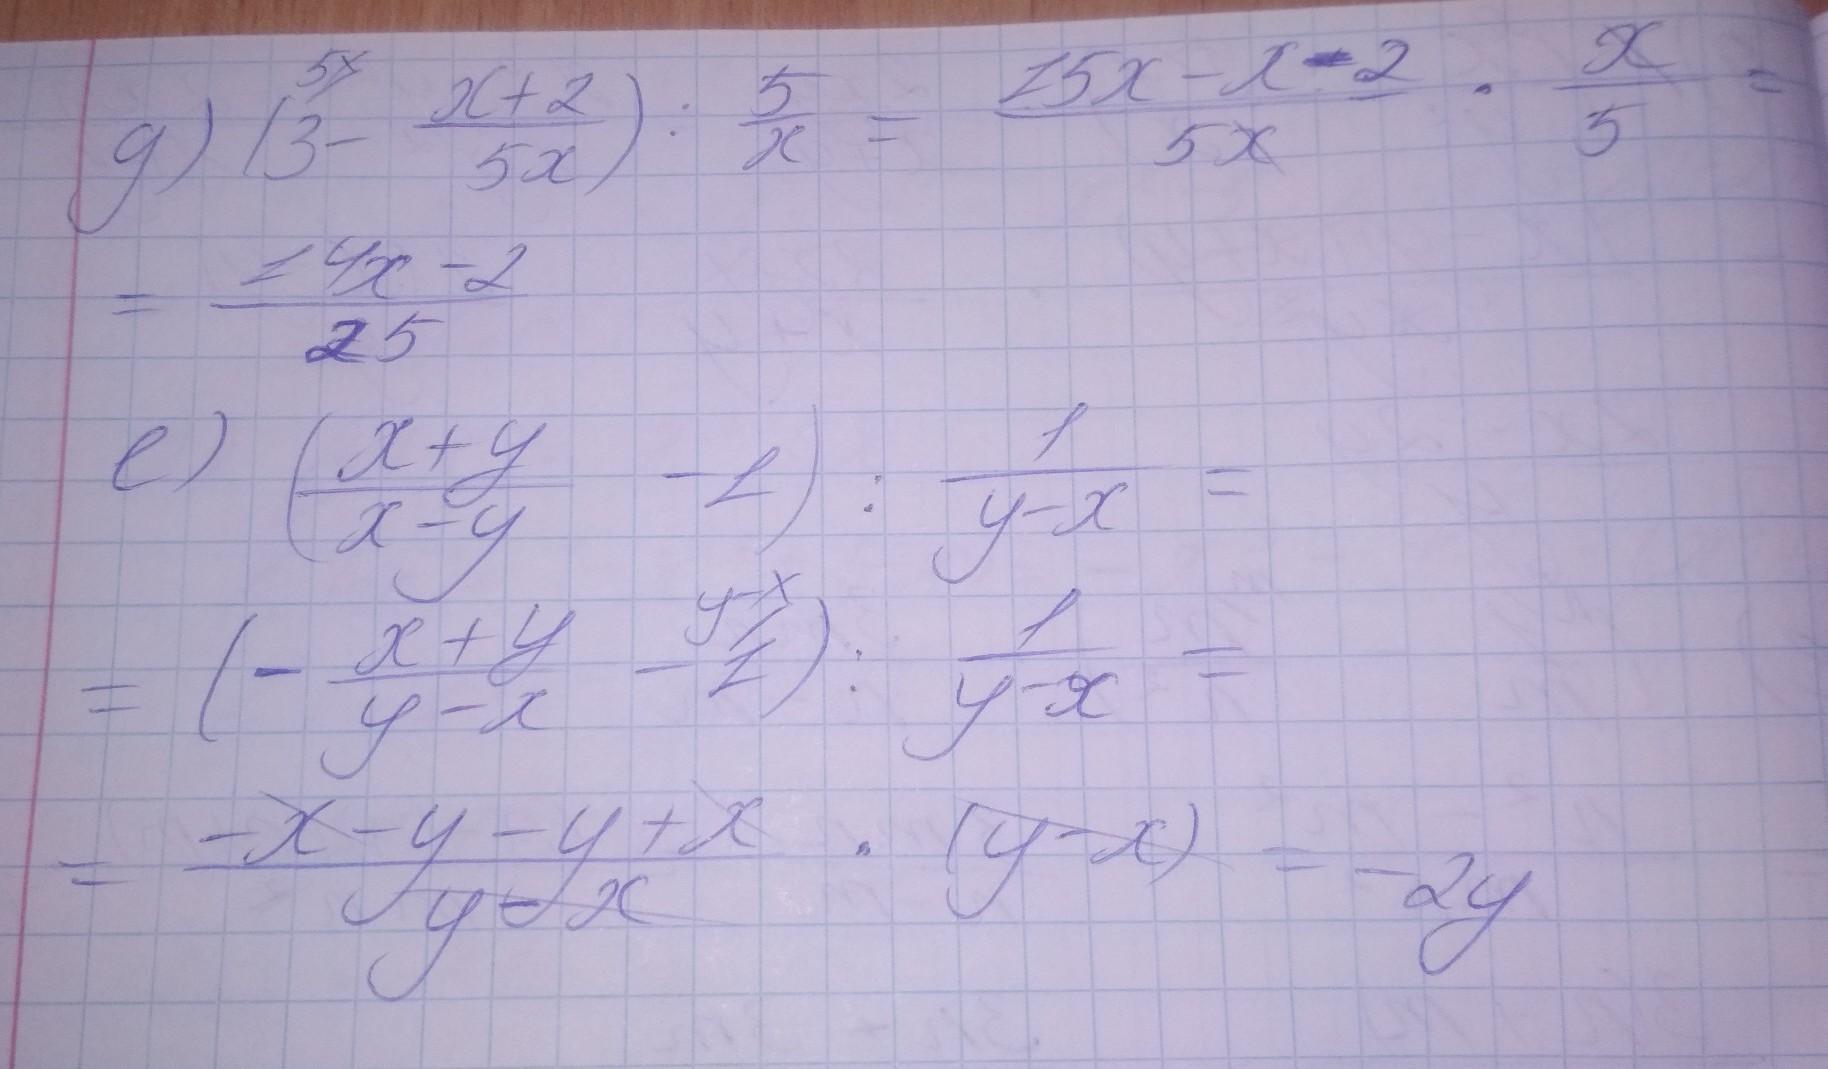 д) (3^{5x} - \frac{x+2}{5x}) : \frac{5}{x} = \frac{15x-x-2}{5x} \cdot \frac{x}{5} =
= \frac{14x-2}{25}
е) (\frac{x+y}{x-y} - 1) : \frac{1}{y-x} =
= (-\frac{x+y}{y-x} - 1^{y-x}) : \frac{1}{y-x} =
= \frac{-x-y-y+x}{y-x} \cdot (y-x) = -2y